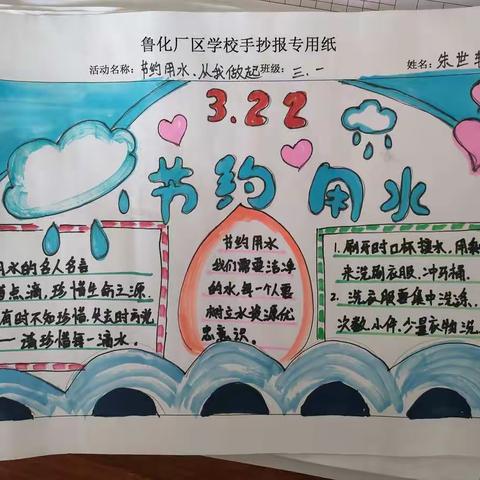 鲁化厂区学校手抄报专用纸
活动名称：节约用水、从我做起班级：三.一 姓名：朱世
3.22
节约用水
用水的名人名言
点滴，珍惜生命之源.
有时不知珍惜，失去时再说
一滴珍惜每一滴水.
节约用水
我们需要洁净
的水，每一个要
树立水资源优
患意识.
1. 刷牙时口杯接水，用剩
来洗刷衣服、冲马桶.
2. 洗衣服要集中洗涤.
次数，小件、少量衣物洗